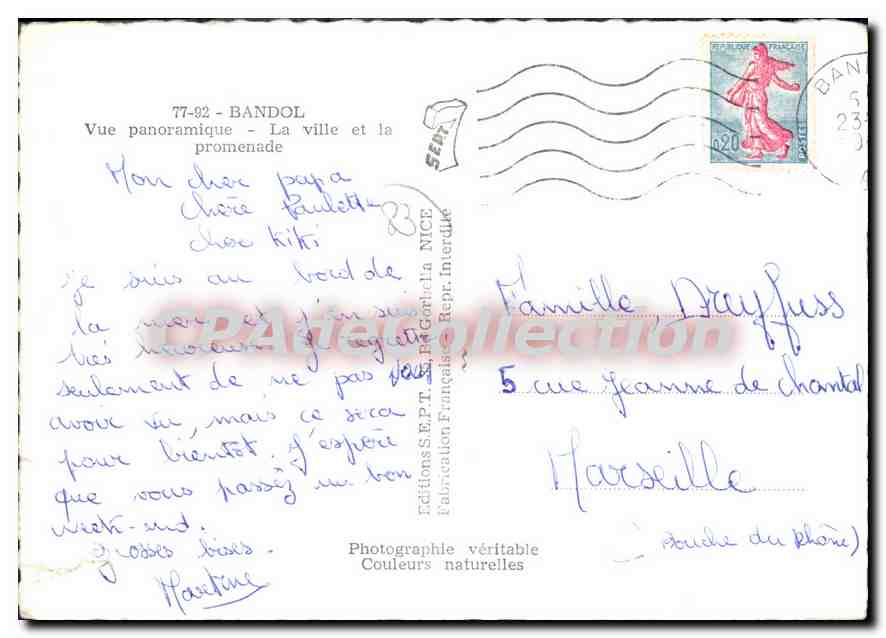 77-92 - BANDOL
Vue panoramique - La ville et la
promenade
Mon cher papa
Chère Paulette
cher Kiki
je suis au bord de
la mer et j'en suis
très heureuse. Je regrette
seulement de ne pas vous
avoir vu, mais ce sera
pour bientôt. J'espère
que vous passez un bon
week-end.
grosses bises.
Martine
83
SEPT
Editions S.E.P.T. Bd Gorbella NICE
Fabrication Française - Repr. Interdite
Photographie véritable
Couleurs naturelles
REPUBLIQUE FRANÇAISE
0,20
POSTES
BAN
23
Famille Dreyfuss
5 rue Jeanne de Chantal
Marseille
(Bouche du Rhône)
CPAdeCollection